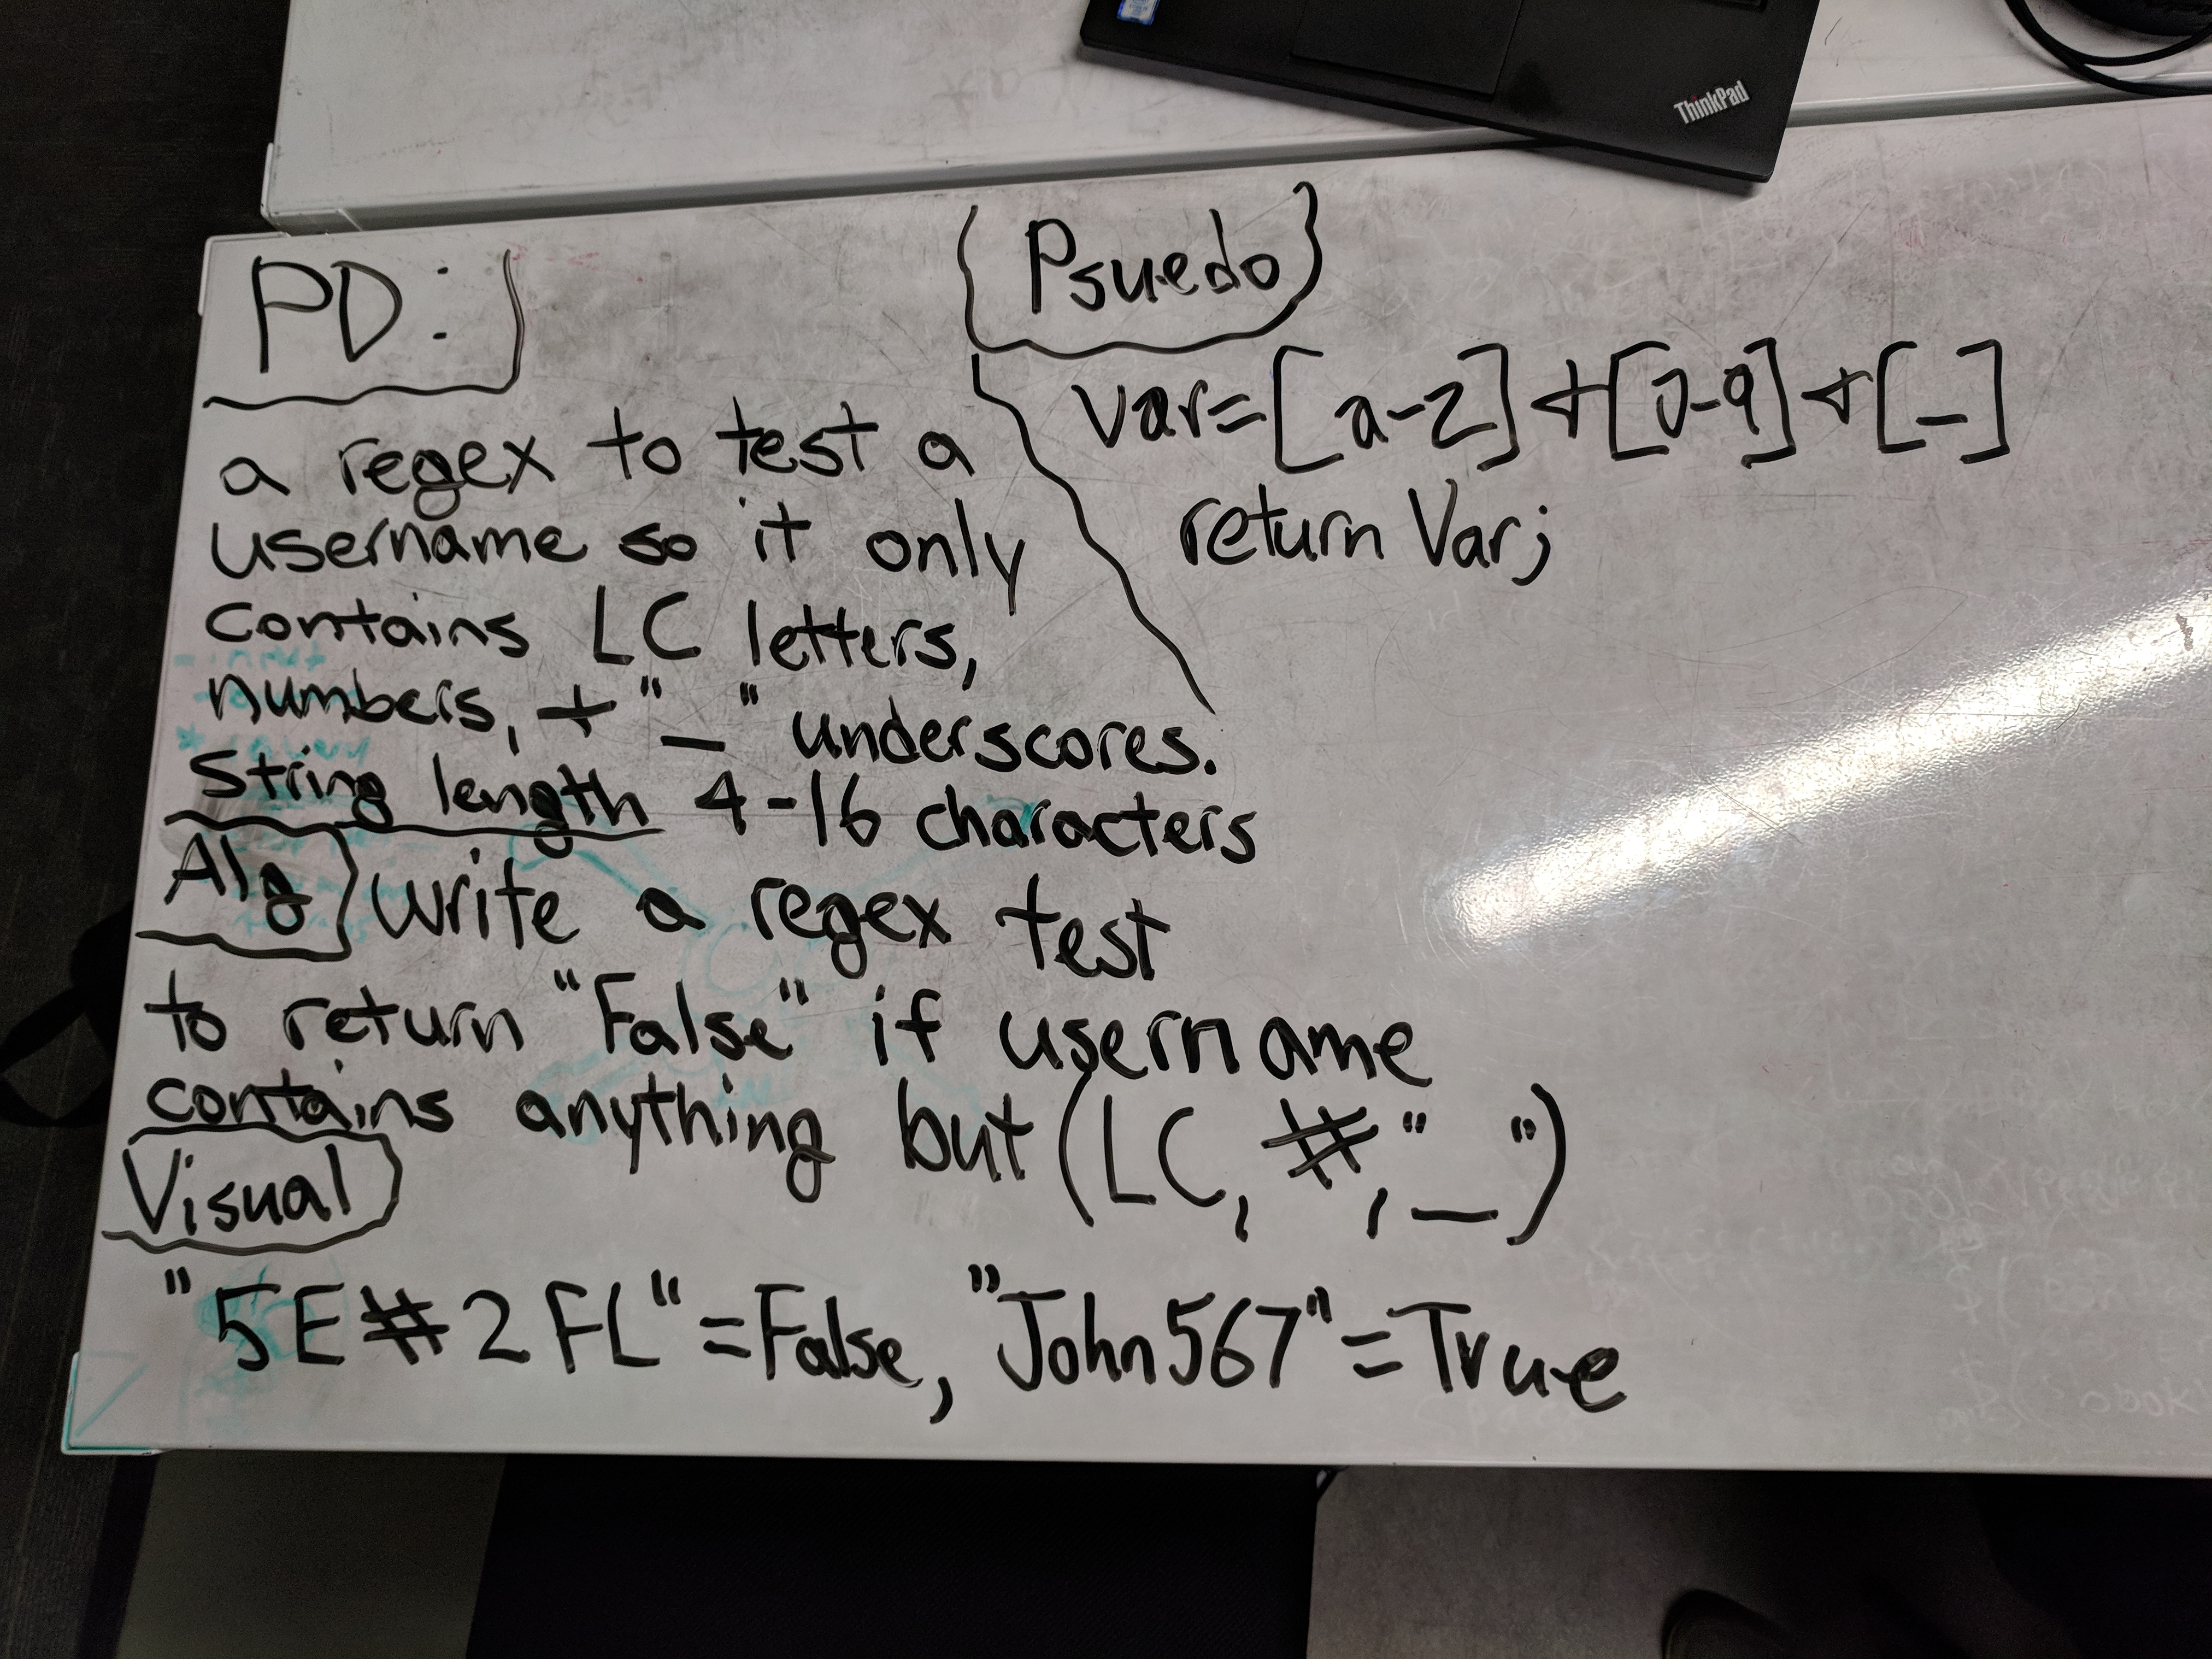 ThinkPad
PD:
a regex to test a
username so it only
contains LC letters,
numbers, + "_" underscores.
String length 4-16 characters
Alg write a regex test
to return "False" if username
contains anything but (LC, #, "_")
Visual
"5E#2FL" = False, "John567" = True
Psuedo
var = [a-z] + [0-9] + [_]
return Var;